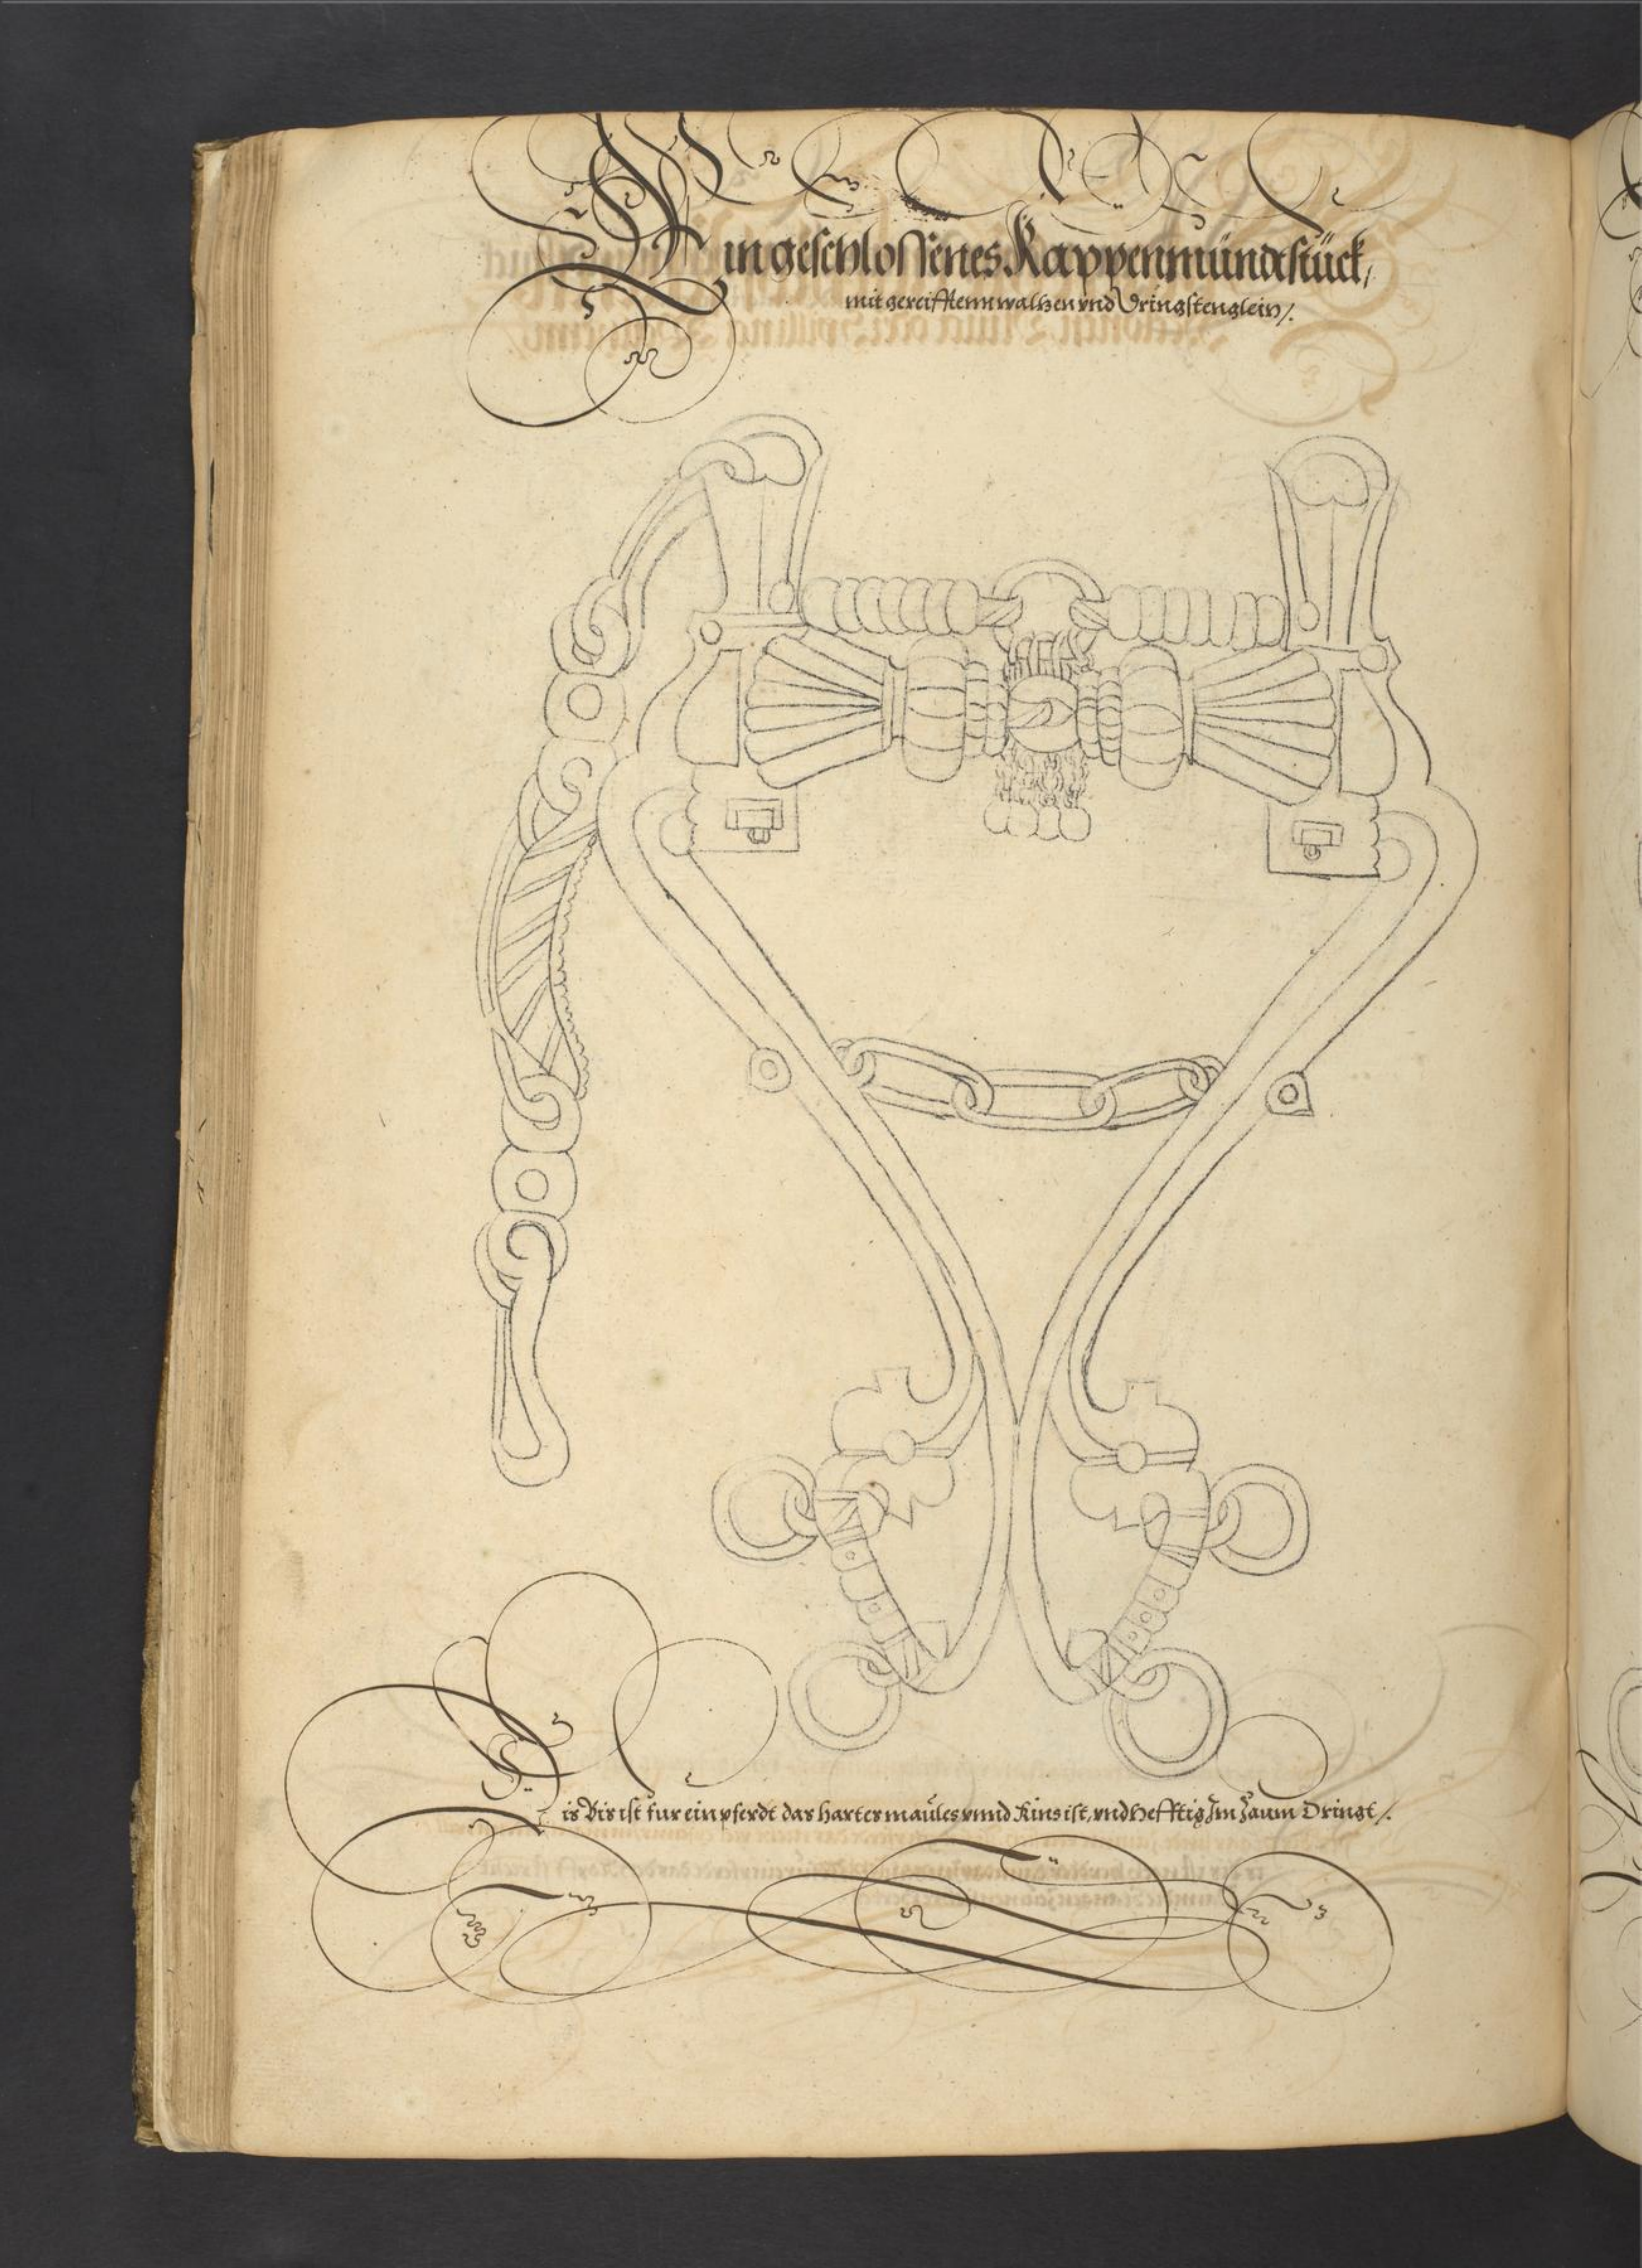 Ein geschlossenes Kappenmündtstück,
mit gereifftenn walhen vnd Dringstenglein /.
Dis Bis ist fur ein pferdt das hartes maules vnnd Kins ist, vnd Hefftig Im Zaum Dringt /.